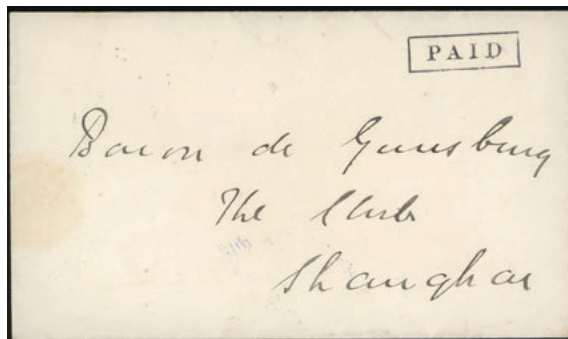 PAID
Baron de Gunsburg
The Club
Shanghai